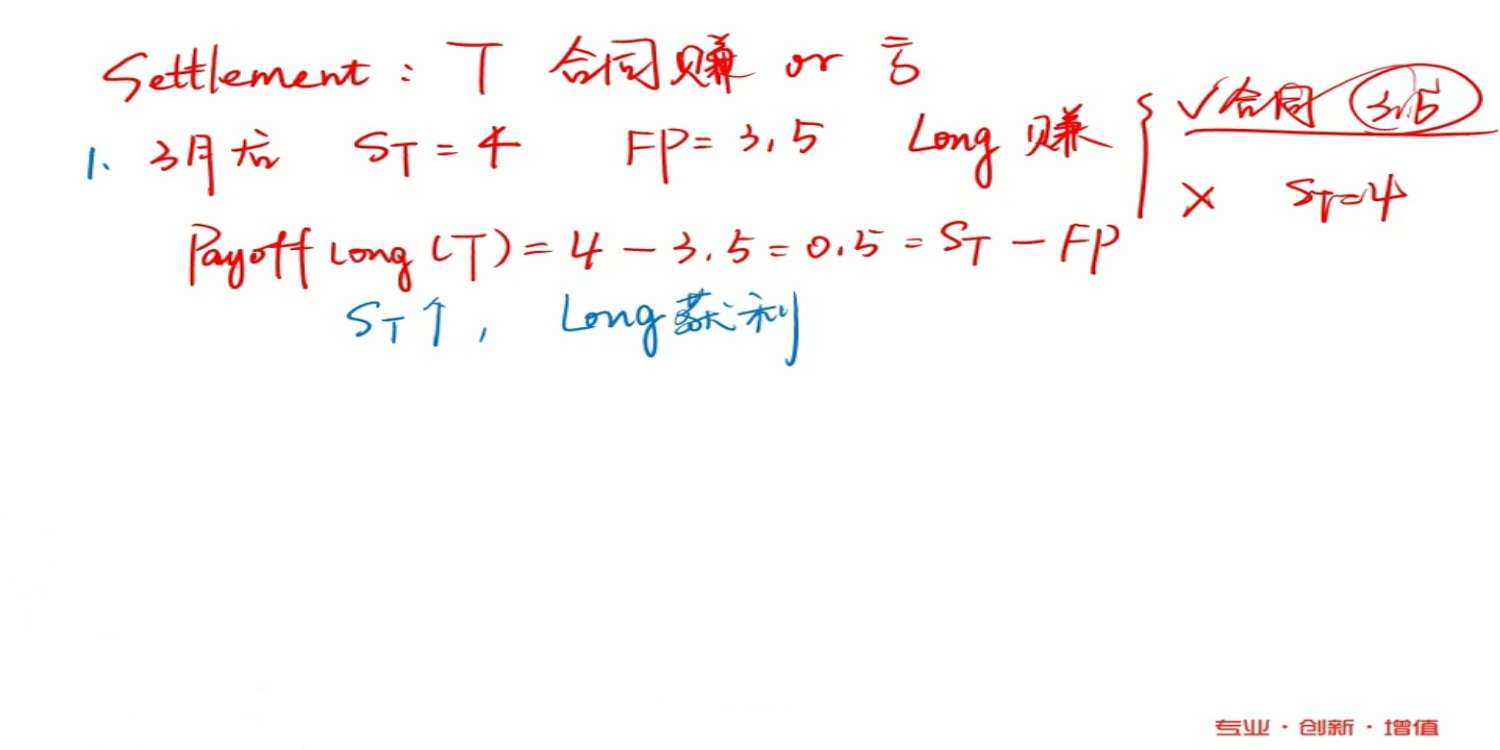 Settlement : T 合同赚 or 亏
√合同 3.5
1. 3月后 ST = 4 FP = 3.5 Long 赚
× ST=4
Payoff Long (T) = 4 - 3.5 = 0.5 = ST - FP
ST↑, Long获利
专业·创新·增值